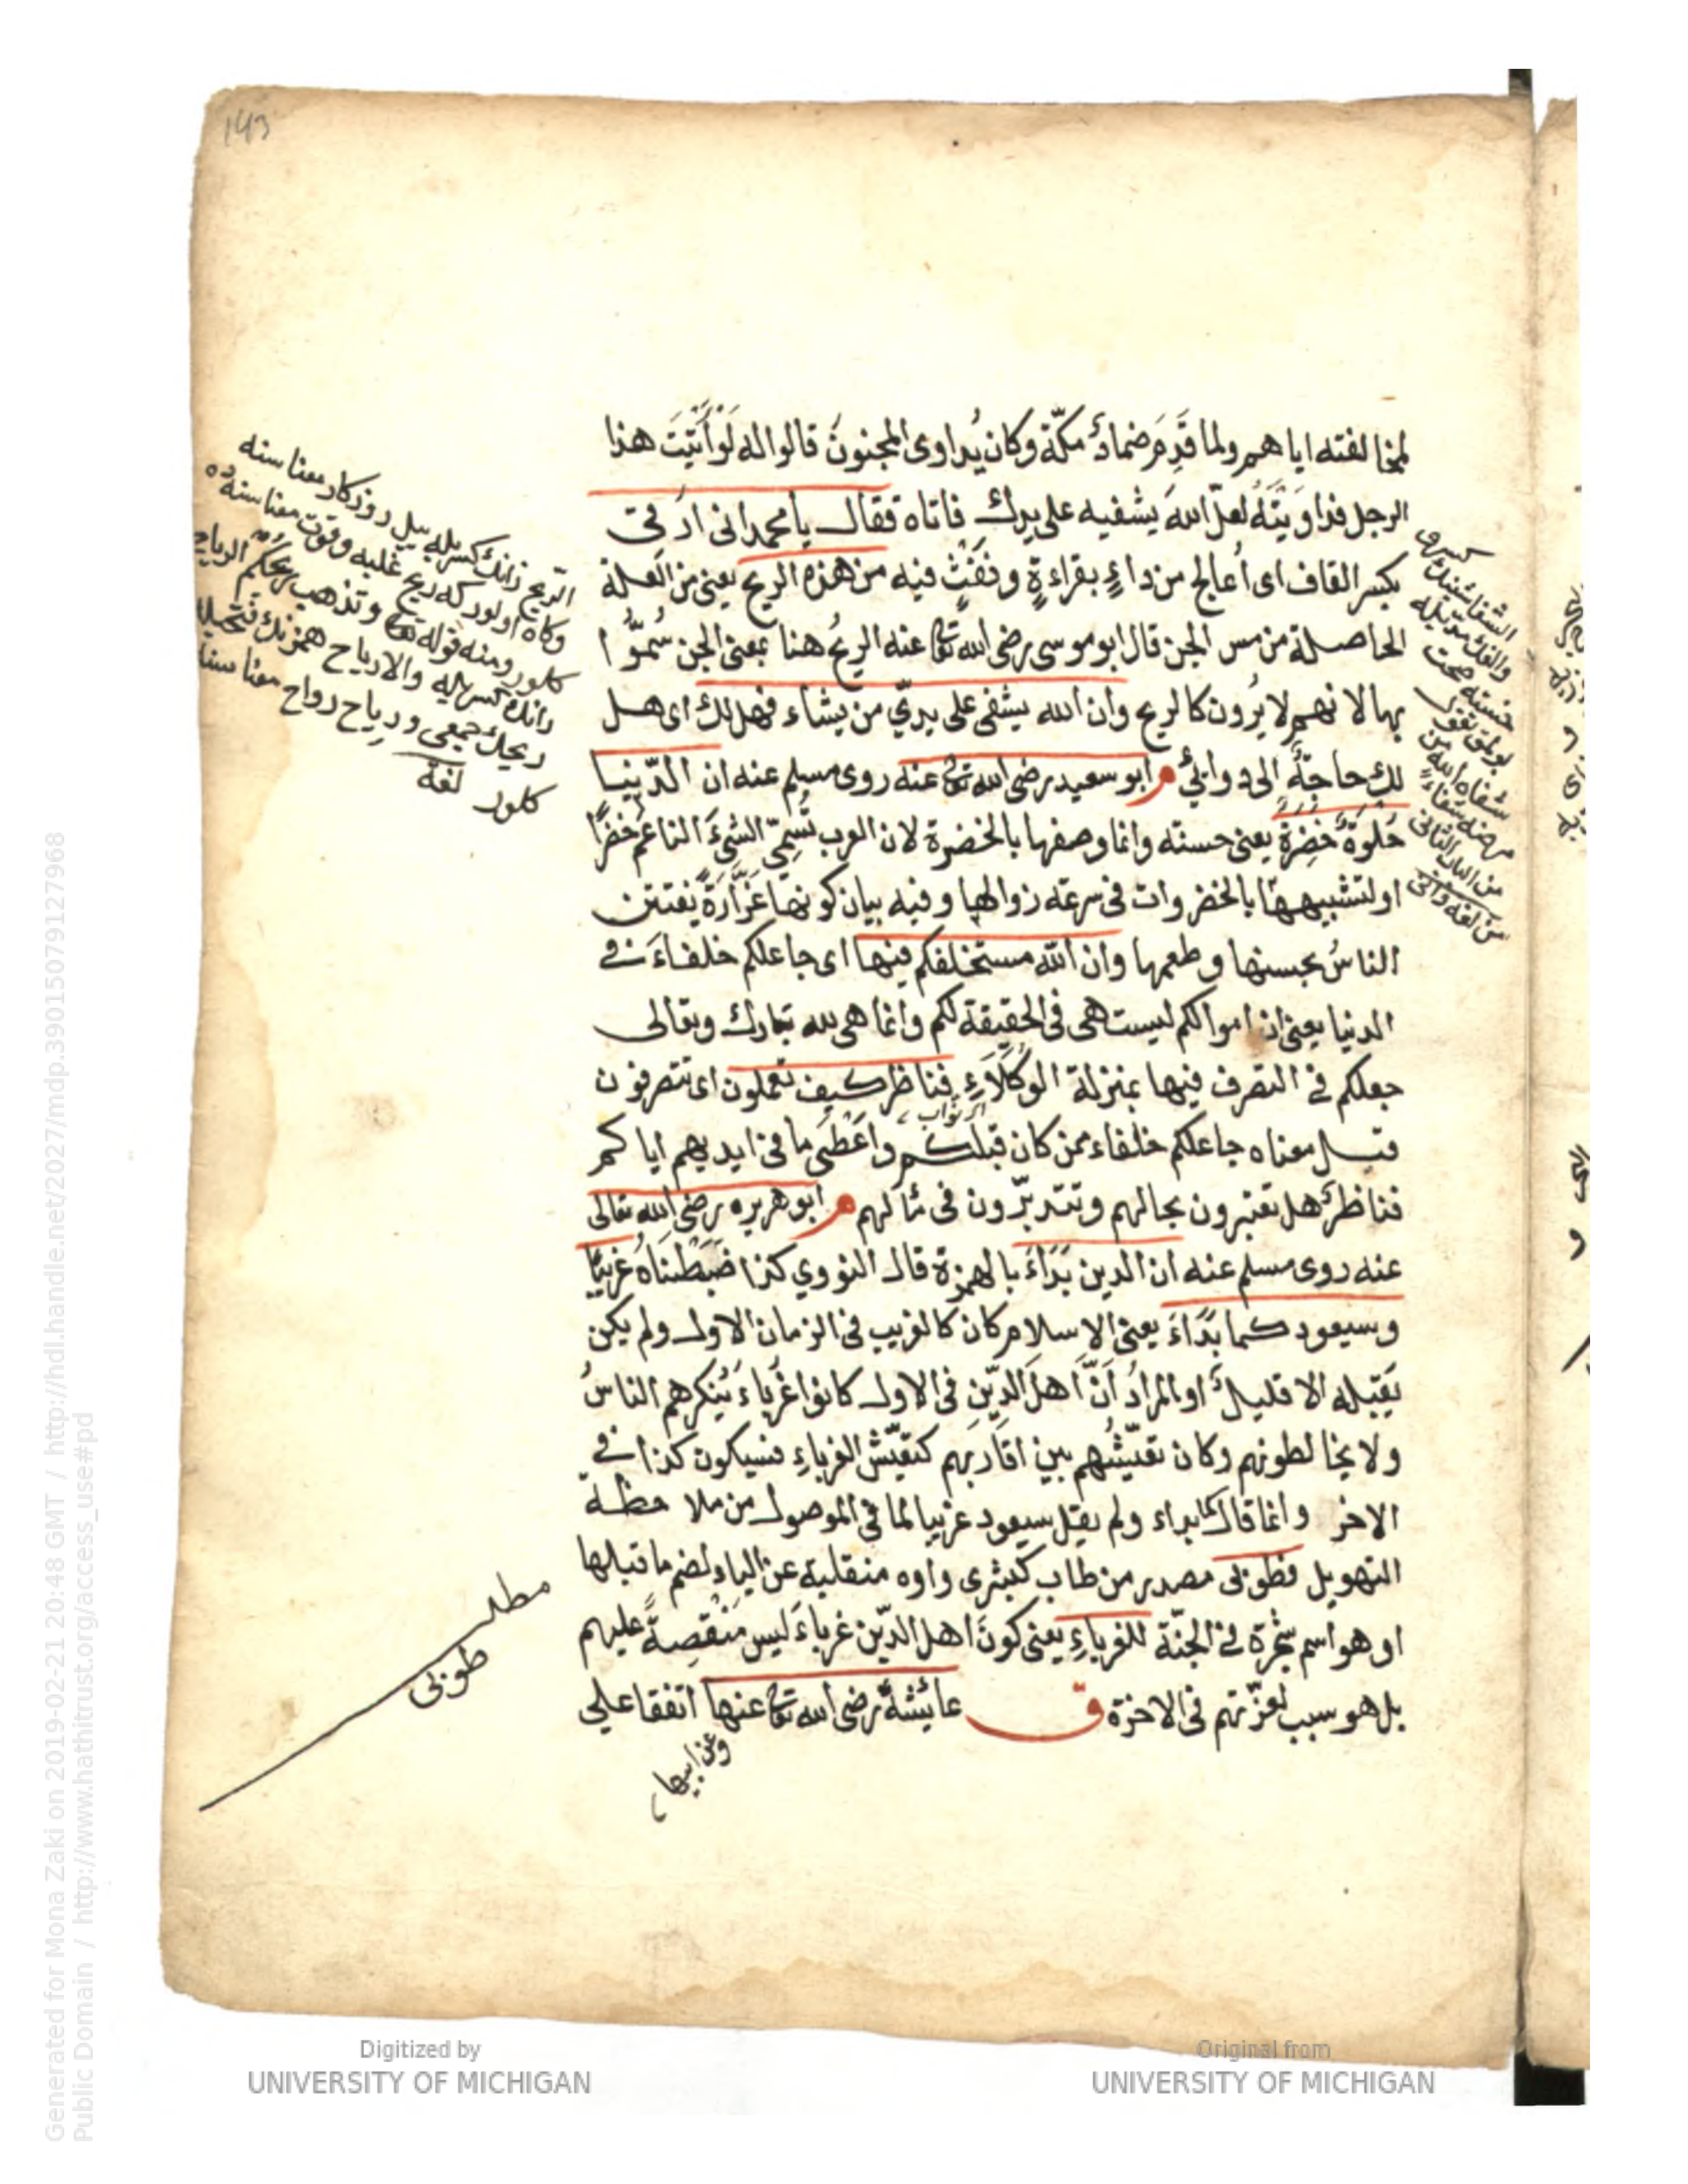 143
لمخالفته اياهم ولما قَدِمَ ضمادٌ مكّة وكان يُداوى المجنونَ قالوا له لَوْ أَتَيْتَ هذا
الرجل فداوَيْتَهُ لعلّ اللهَ يشفيه على يدك فاتاه فقال يا محمد انى ارقى
بكسر القاف اى أعالج من داءٍ بقراءةٍ ونفثٍ فيه من هذه الريح يعنى من العلة
الحاصلة من مس الجن قال ابو موسى رضى الله تع عنه الريحُ هنا بمعنى الجن سُمّوا
بها لانهم لا يُرون كالريح وان الله يشفى على يدىّ من يشاء فهل لك اى هل
لك حاجةٌ الى دوائى م ابو سعيد رضى الله تع عنه روى مسلم عنه ان الدّنيا
حُلوَةٌ خَضِرَةٌ يعنى حسنته وانما وصفها بالخضرة لان العرب تُسمّى الشىءَ الناعمَ خضرًا
او لتشبيهها بالخضروات فى سرعة زوالها وفيه بيان كونها غرّارةً يفتتن
الناسُ بحسنها وطعمها وان الله مستخلفكم فيها اى جاعلكم خلفاءَ فى
الدنيا يعنى ان اموالكم ليست هى فى الحقيقة لكم وانما هى لله تبارك وتعالى
جعلكم فى التصرف فيها بمنزلة الوُكَلَاءِ فناظر كيف تعملون اى تتصرفون
اى نوّاب
قيل معناه جاعلكم خلفاء ممن كان قبلكم واَعْطَى ما فى ايديهم اياكم
فناظرٌ هل تعتبرون بحالهم وتتدبّرون فى مآلهم م ابو هريره رضى الله تعالى
عنه روى مسلم عنه ان الدين بَدَاءَ بالهمزة قال النووي كذا ضبطناه غريبًا
وسيعود كما بَدَاءَ يعنى الاسلام كان كالغريب فى الزمان الاول ولم يكن
يَقبَله الا قليلٌ او المرادُ اَنَّ اَهلَ الدّين فى الاول كانوا غُرباءَ يُنكرهم الناسُ
ولا يخالطونهم وكان تعيّشُهم بين اقاربهم كتعيّش الغرباءِ فسيكون كذا فى
الاخر وانما قال كما بداء ولم يقل سيعود غريبا لما فى الموصول من ملاحظة
التهويل فطوبى مصدر من طاب كبشرى واوه منقلبة عن الياء لضم ما قبلها
او هو اسم شجرة فى الجنّة للغرباءِ يعنى كونَ اهل الدّين غرباءَ ليس مَنْقصةً عليهم
بل هو سبب لعزّتهم فى الاخرة ق عايشةُ رضى الله تع عنها اتفقا على
وعن ابيها
مطلب
طوبى
كلور ومنه قوله تع وتذهب ريحكم
كلور لغة
Generated for Mona Zaki on 2019-02-21 20:48 GMT / http://hdl.handle.net/2027/mdp.39015079127968
Public Domain / http://www.hathitrust.org/access_use#pd
Digitized by
UNIVERSITY OF MICHIGAN
Original from
UNIVERSITY OF MICHIGAN